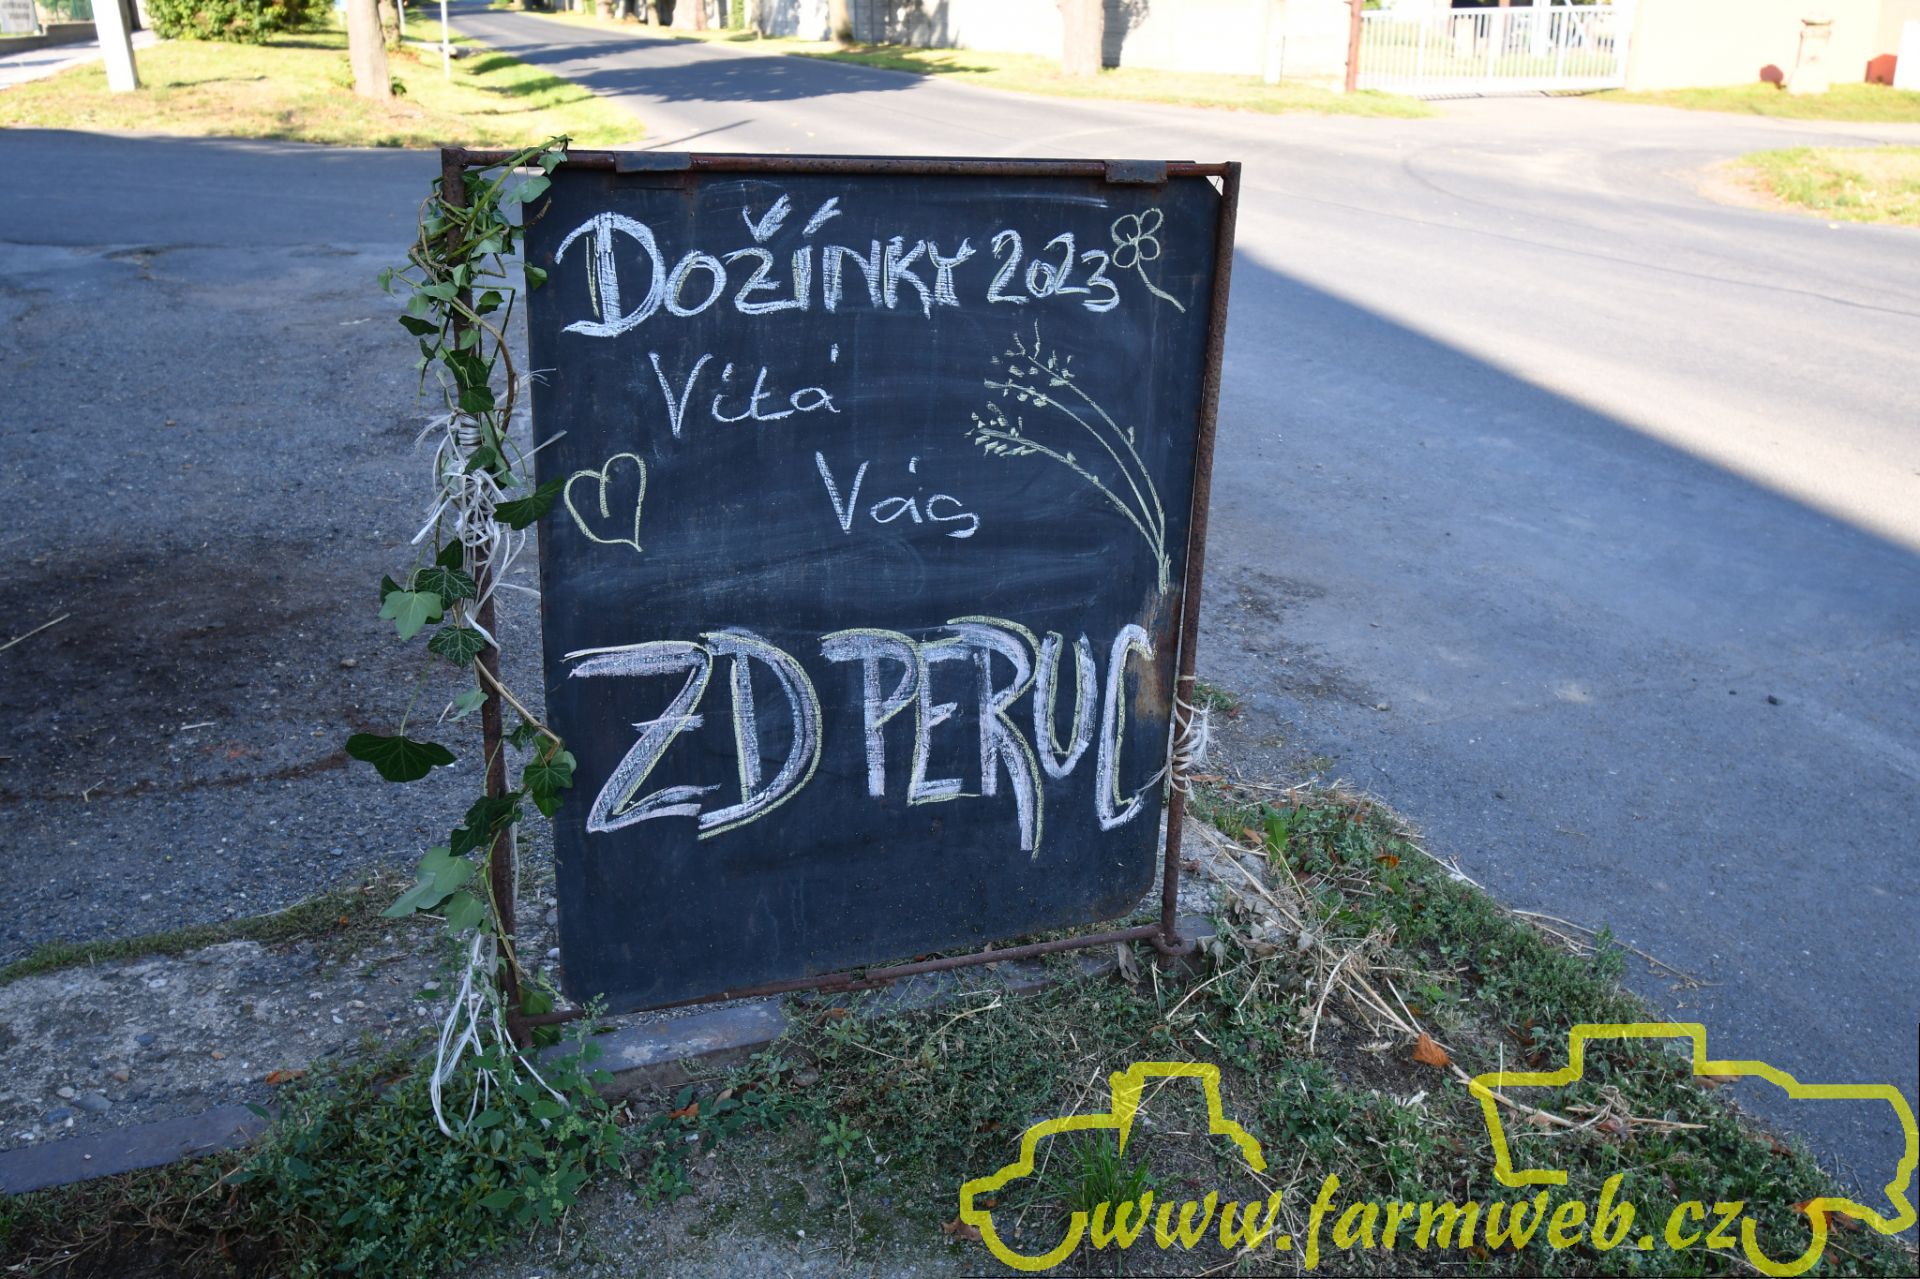 DOŽÍNKY 2023
Vítá
Vás
ZD PERUC
www.farmweb.cz